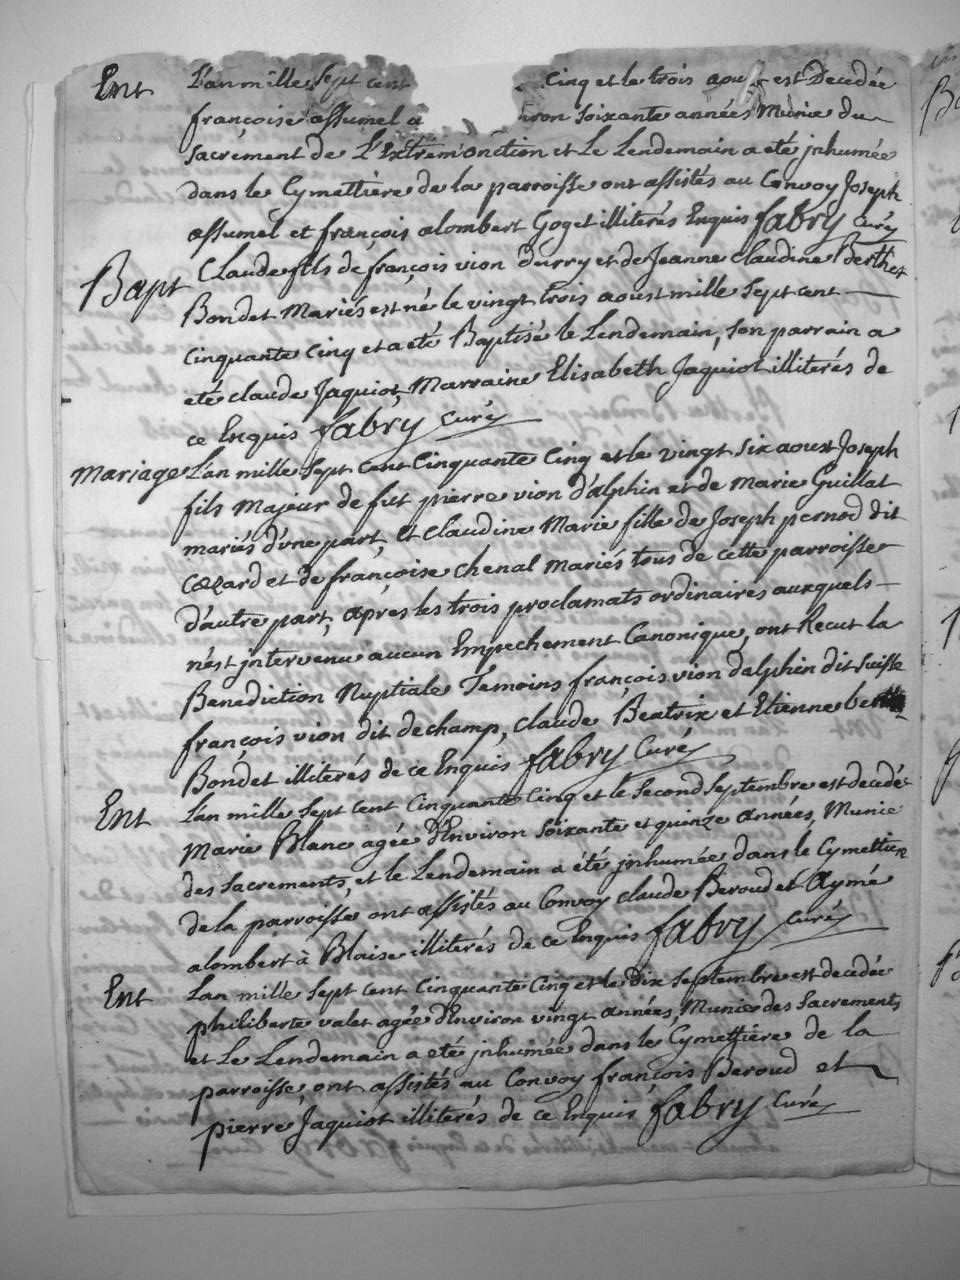 Ent L'an mille Sept cent Cinq et le trois aou est Decedée
françoise assumel a iron soixante années Munie du
sacrement de L'Extremonction et Le Lendemain a été jnhumée
dans le Cymettière de la parroisse ont assistés au Convoy Joseph
assumel et françois alombert Goget illiterés Enquis fabry Curé
Bapt Claude fils de françois vion Durry et de Jeanne Claudine Berthet
Bondet Mariés est né le vingt trois aoust mille Sept cent
Cinquante Cinq et a été Baptisé le Lendemain, Son parrain a
eté claude Jaquiot, Marraine Elisabeth Jaquiot illiterés de
ce Enquis fabry curé
Mariage L'an mille Sept Cent Cinquante Cinq et le vingt Six aoust Joseph
fils Majeur de fut pierre vion d'alphin et de Marie Guillat
mariés d'vne part, et Claudine Marie fille de Joseph pernod dit
Cozard et de françoise chenal Mariés tous de cette parroisse
d'autre part, après les trois proclamats ordinaires auxquels
n'est jntervenu aucun Empechement Canonique, ont Recut la
Benediction Nuptiale Temoins françois vion dalphin dit Suisse
françois vion dit dechamp, Claude Beatrix et Etienne
Bondet illiterés de ce Enquis fabry Curé
Ent L'an mille Sept Cent Cinquante Cinq et le Second Septembre est decedée
Marie Blanc agée d'Environ Soixante et quinze années, Munie
des Sacrements, et le Lendemain a été jnhumée dans le Cymettiere
de la parroisse ont assistés au Convoy claude Beroud et Aymé
alombert à Blaise illiterés de ce Enquis fabry Curé
Ent L'an mille Sept Cent Cinquante Cinq et le Dix Septembre est decedée
philiberte valet agée d'Environ vingt années, Munie des Sacrements
et Le Lendemain a eté jnhumée dans le Cymettière de la
parroisse, ont assistés au Convoy françois Beroud et
pierre Jaquiot illiterés de ce Enquis fabry Curé